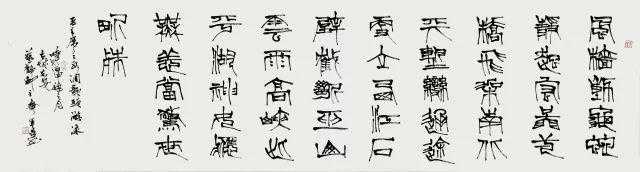 風檣動龜蛇
靜起宏圖一
橋飛架南北
天塹變通途
更立西江石
壁截斷巫山
雲雨高峽出
平湖神女應
無恙當驚世
界殊
毛主席之詞水調歌頭游泳